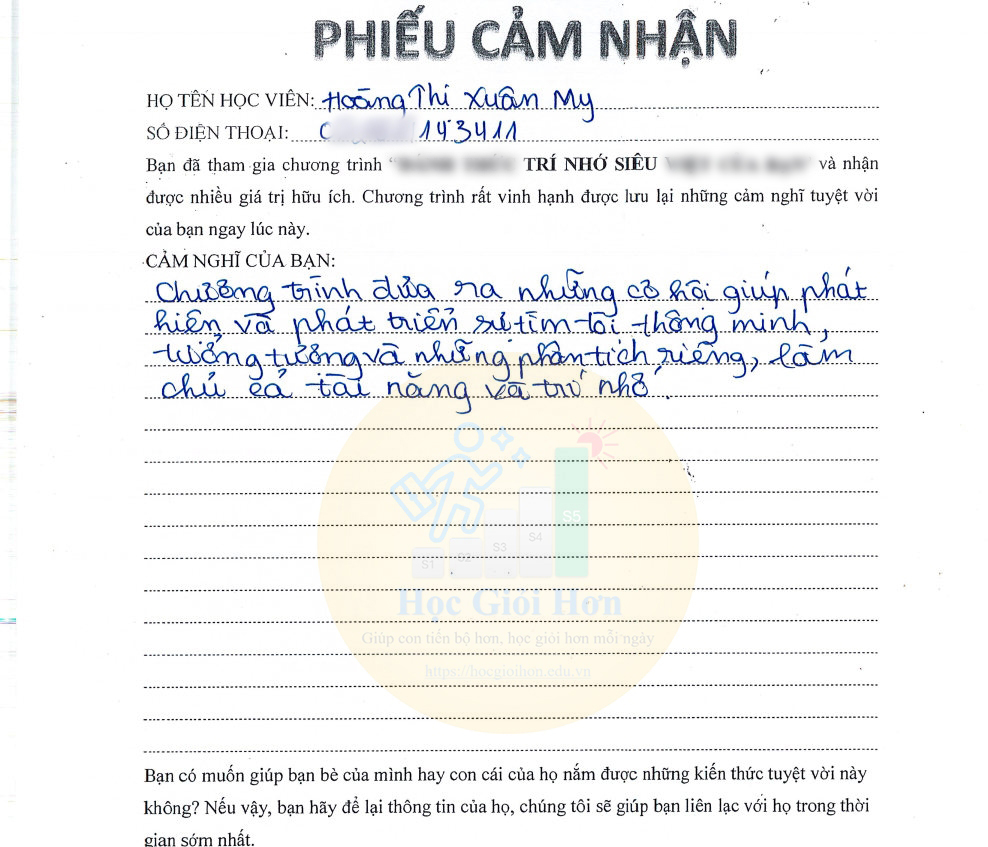 PHIẾU CẢM NHẬN
HỌ TÊN HỌC VIÊN: Hoàng Thi Xuân My
SỐ ĐIỆN THOẠI: 143411
Bạn đã tham gia chương trình " TRÍ NHỚ SIÊU " và nhận
được nhiều giá trị hữu ích. Chương trình rất vinh hạnh được lưu lại những cảm nghĩ tuyệt vời
của bạn ngay lúc này.
CẢM NGHĨ CỦA BẠN:
Chương trình đưa ra những cơ hội giúp phát
hiện và phát triển sự tìm tòi thông minh,
tưởng tượng và những phân tích riêng, làm
chủ cả tài năng và trí nhớ.
S1
S2
S3
S4
S5
Học Giỏi Hơn
Giúp con tiến bộ hơn, học giỏi hơn mỗi ngày
https://hocgioihon.edu.vn
Bạn có muốn giúp bạn bè của mình hay con cái của họ nắm được những kiến thức tuyệt vời này
không? Nếu vậy, bạn hãy để lại thông tin của họ, chúng tôi sẽ giúp bạn liên lạc với họ trong thời
gian sớm nhất.